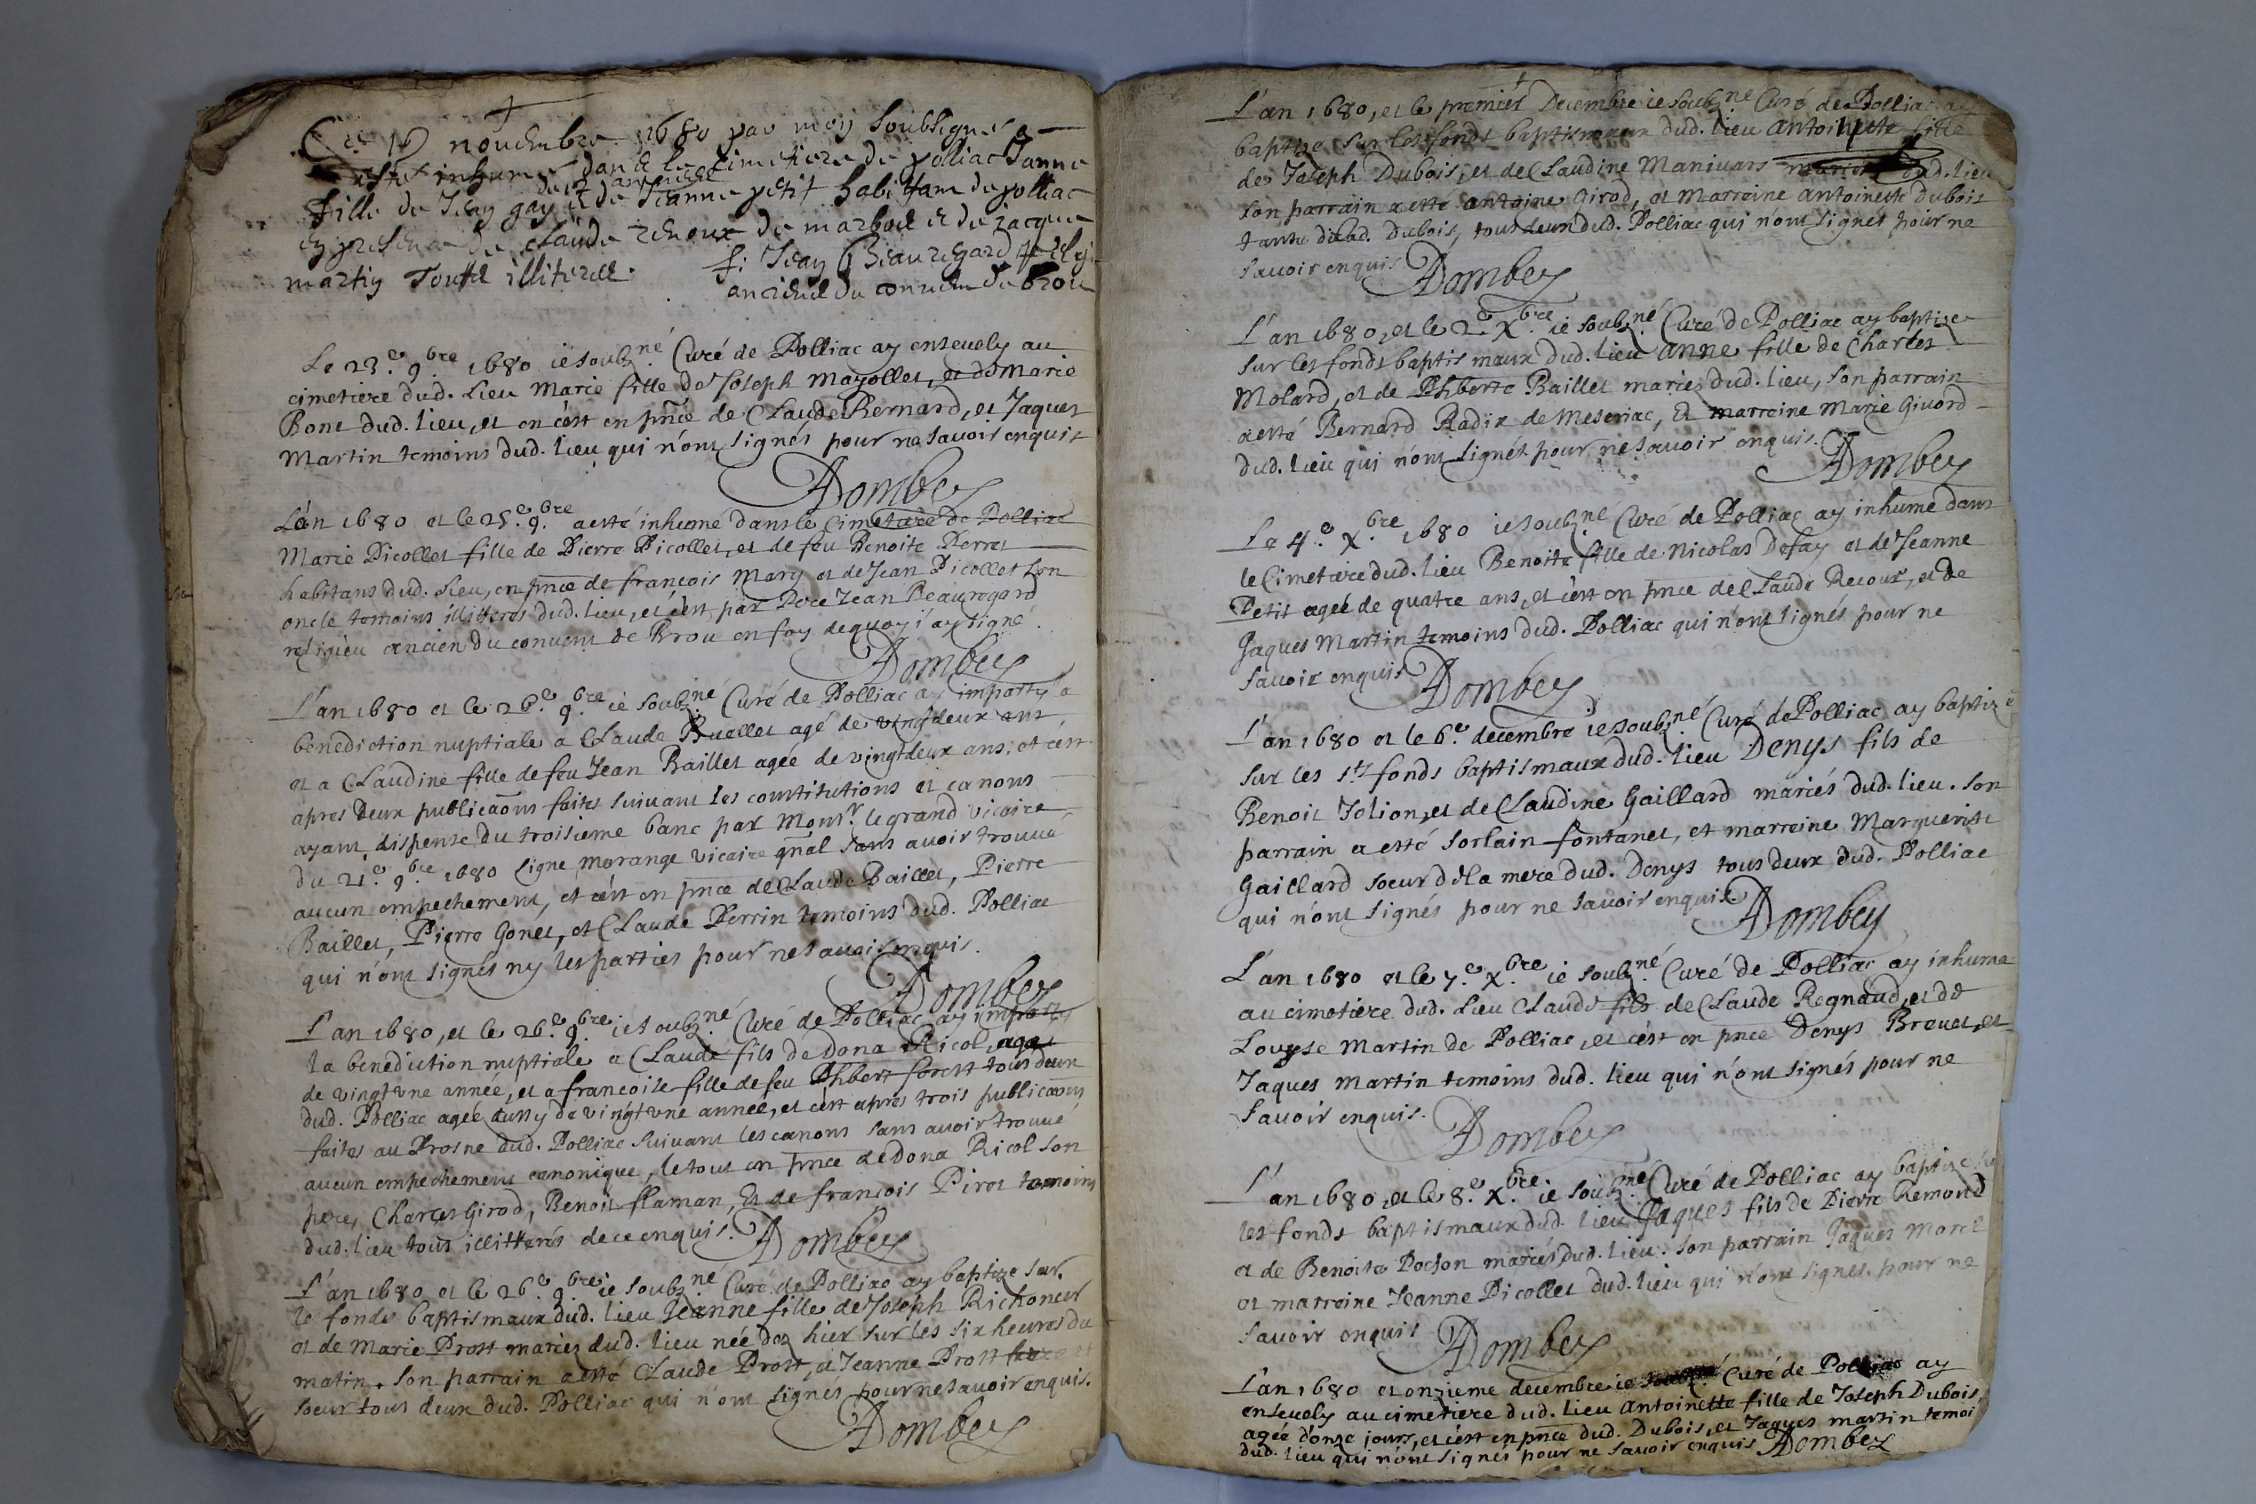 Ce 16 novembre 1680 par moy soubsigné a
esté inhumé dans le cimetiere de polliac Janne
fille de Jean gay et de Jeanne petit habitans de polliac
en presence de claude renoux de marbod et de Jacque
martin Touts illiteres.
f: Jean Beauregard relig
ancien du convem de brou
Le 23.e 9.bre 1680 ie soubz.né Curé de Polliac ay ensevely au
cimetiere dud. Lieu Marie fille de Joseph Mayollet, et de Marie
Bont dud. lieu, et en c'est en pnce de Claude Bernard, et Jaques
Martin temoins dud. lieu qui n'ont signés pour ne savoir enquis
ADombey
L'an 1680 et le 25.e 9.bre a esté inhumé dans le Cimetiere de Polliac
Marie Picollet fille de Pierre Picollet, et de feu Benoite Perret
habitans dud. lieu, en pnce de francois Mary et de Jean Picollet son
oncle temoins illitteres dud. lieu, et c'est par Pere Jean Beauregard
religieu ancien du convent de Brou en foy dequoy i'ay signé.
ADombey
L'an 1680 et le 26.e 9.bre ie soubz.né Curé de Polliac ay imparty la
benediction nuptiale a Claude Buellet agé de vingt deux ans
et a Claudine fille de feu Jean Baillet ageé de vingtdeux ans, et c'est
apres Deux publicaons faites suivant les constitutions et canons
ayant dispense du troisieme banc par Mons.r le grand vicaire
du 21.e 9.bre 1680 signe Morange vicaire gnal sans avoir trouvé
aucun empechement, et c'est en pnce de Claude Baillet, Pierre
Baillet, Pierre Gonet, et Claude Perrin temoins dud. Polliac
qui n'ont signés ny les parties pour ne savoir enquis.
ADombey
L'an 1680, et le 26.e 9.bre ie soubz.né Curé de Polliac ay imparty
la benediction nuptiale a Claude fils de dona Ricol, agé
de vingt vne année, et a francoise fille de feu Phbert forest tous deux
dud. Polliac ageé aussy de vingt vne année, et c'est apres trois publicaons
faites au Prosne dud. Polliac suivant les canons sans avoir trouvé
aucun empechement canonique, le tout en pnce de dona Ricol son
pere, Charles Girod, Benoit flaman, Et de francois Piret temoins
dud. lieu tous illitterés de ce enquis.
ADombey
L'an 1680 et le 26.e 9.bre ie soubz.né Curé de Polliac ay baptize sur
le fonds baptismaux dud. lieu Jeanne fille de Joseph Richoneur
et de Marie Prost mariez dud. lieu née dez hier sur les six heures du
matin. Son parrain a esté Claude Prost, et Jeanne Prost
soeur tous deux dud. Polliac qui n'ont signés pour ne savoir enquis.
ADombey
L'an 1680, et le premier Decembre ie soubz.ne Curé de Polliac ay
baptize sur les fonds baptismaux dud. lieu Antoinette fille
de Joseph Dubois, et de Claudine Manivars dud. lieu
son parrain a esté antoine Girod, et Marreine Antoinette Dubois
tante dudd. Dubois, tous deux dud. Polliac qui n'ont signés pour ne
savoir enquis
ADombey
L'an 1680, et le 2.e X.bre ie soubz.né Curé de Polliac ay baptize
sur les fonds baptismaux dud. lieu Anne fille de Charles
Molard, et de Phberte Baillet mariez dud. lieu, son parrain
a esté Bernard Radix de Meseriac, Et marreine Marie Givord
dud. lieu qui n'ont signés pour ne savoir enquis.
ADombey
Le 4.e X.bre 1680 ie soubz.né Curé de Polliac ay inhume dans
le Cimetiere dud. lieu Benoite fille de Nicolas Defay et de Jeanne
Petit ageé de quatre ans, et c'est en pnce de Claude Recour, et de
Jaques Martin temoins dud. Polliac qui n'ont signés pour ne
savoir enquis
ADombey
L'an 1680 et le 6.e decembre ie soubz.né Curé de Polliac ay baptizé
sur les s.ts fonds baptismaux dud. lieu Denys fils de
Benoit Jolion, et de Claudine Gaillard mariés dud. lieu. son
parrain a esté Sorlain fontanet, et marreine Marguerite
Gaillard soeur de la mere dud. Denys tous deux dud. Polliac
qui n'ont signés pour ne savoir enquis.
ADombey
L'an 1680 et le 7.e X.bre ie soubz.né Curé de Polliac ay inhume
au cimetiere dud. Lieu Claude fils de Claude Regnaud, et de
Louyse Martin de Polliac, et c'est en pnce Denys Brevet, et
Jaques Martin temoins dud. lieu qui n'ont signés pour ne
savoir enquis.
ADombey
L'an 1680, et le 8.e X.bre ie soubz.né Curé de Polliac ay baptize
les fonds baptismaux dud. lieu Jaques fils de Pierre Remond
et de Benoite Pochon mariés dud. lieu. Son parrain Jaques Morel
et marreine Jeanne Picollet dud. lieu qui n'ont signés pour ne
savoir enquis
ADombey
L'an 1680 et onzieme decembre ie Curé de Polliac ay
ensevely au cimetiere dud. lieu Antoinette fille de Joseph Dubois,
ageé d'onze jours, et c'est en pnce dud. Dubois, et Jaques martin temoi
dud. lieu qui n'ont signés pour ne savoir enquis
ADombey